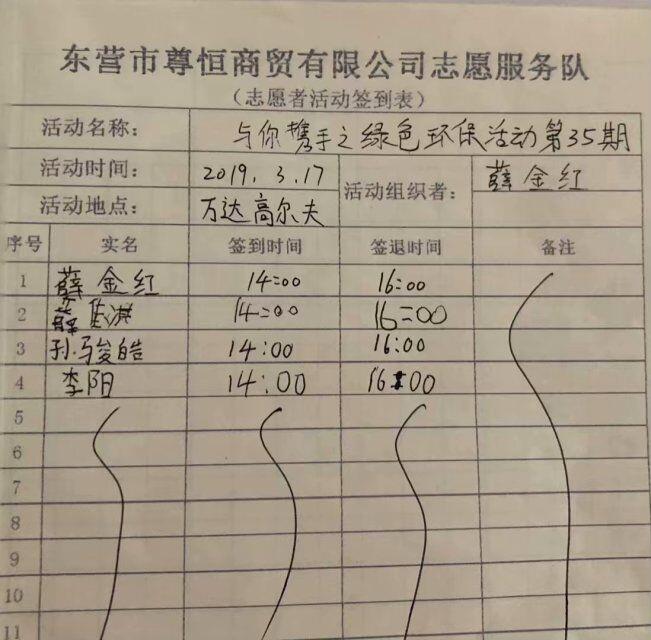 东营市尊恒商贸有限公司志愿服务队
（志愿者活动签到表）
活动名称： 与你携手之绿色环保活动第35期
活动时间： 2019.3.17 活动组织者： 薛金红
活动地点： 万达高尔夫
序号 实名 签到时间 签退时间 备注
1 薛金红 14:00 16:00
2 薛 14:00 16:00
3 孙骏皓 14:00 16:00
4 李阳 14:00 16:00
5
6
7
8
9
10
11